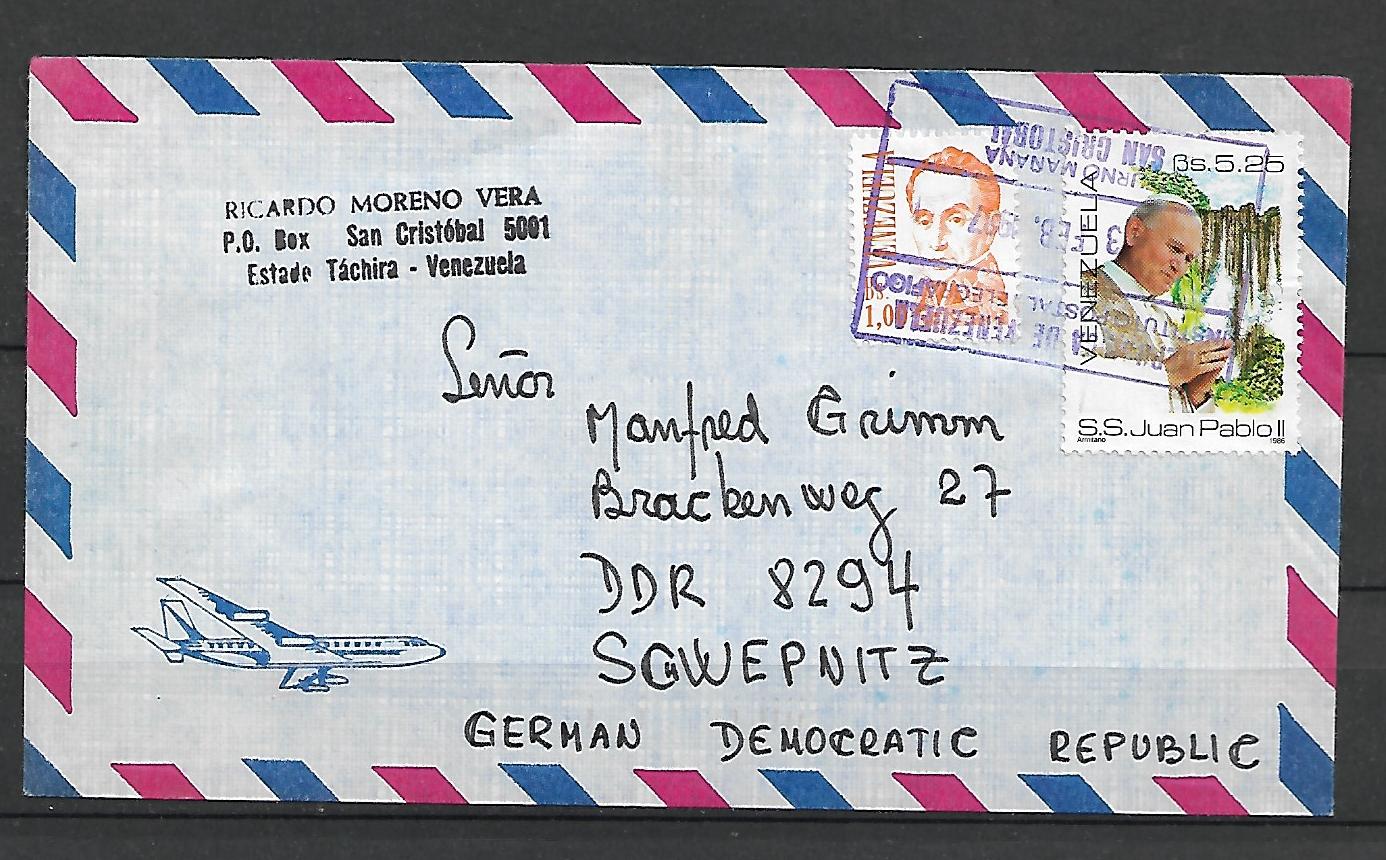 RICARDO MORENO VERA
P.O. Box San Cristóbal 5001
Estado Táchira - Venezuela
VENEZUELA
Bs.
1,00
VENEZUELA
Bs.5.25
S.S. Juan Pablo II
Armitano 1986
SAN CRISTOBAL
MAÑANA
FEB.
DE VENEZUELA
Señor
Manfred Grimm
Brackenweg 27
DDR 8294
SCHWEPNITZ
GERMAN DEMOCRATIC REPUBLIC